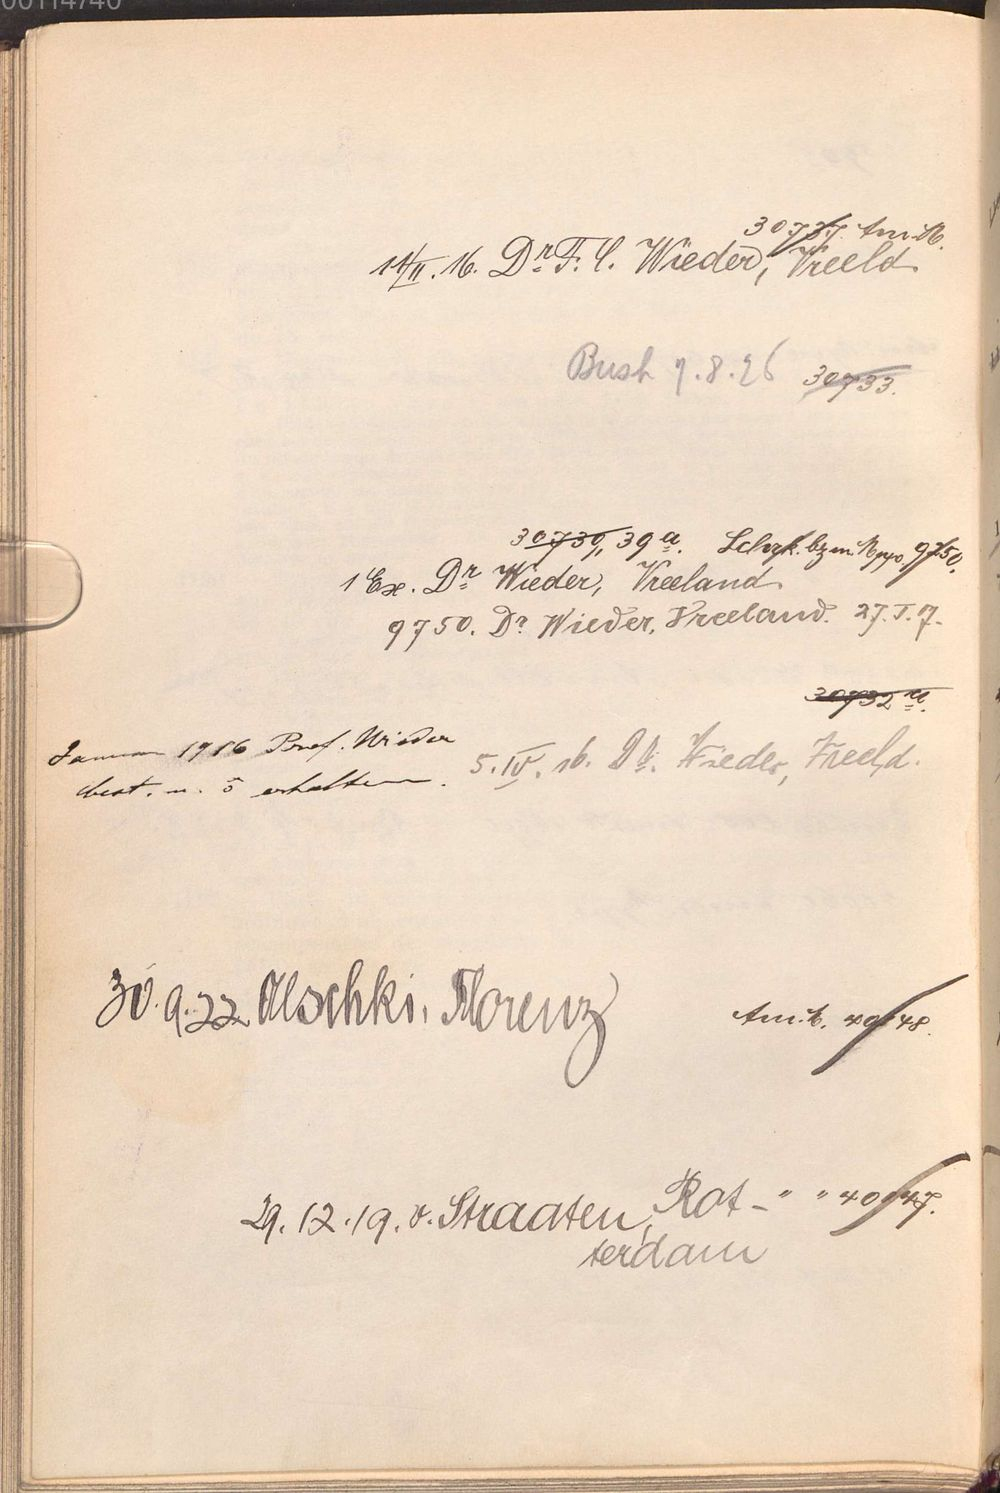 00114740
30737. Am. B.
14/II. 16. Dr. F. C. Wieder, Vreeld
Bush 9.8.26 30733.
30739, 39a. 9750.
1 Ex. Dr. Wieder, Vreeland
9750. Dr. Wieder. Vreeland. 27.I.7.
30732a.
Januar 1916 Prof. Wieder
best. u. 5 erhalten.
5.IV.16. Dr. Wieder, Vreeld.
30.9.22 Olschki, Florenz
Am. B. 40/48.
29.12.19. v. Straaten, Rot- " " 40/47.
terdam